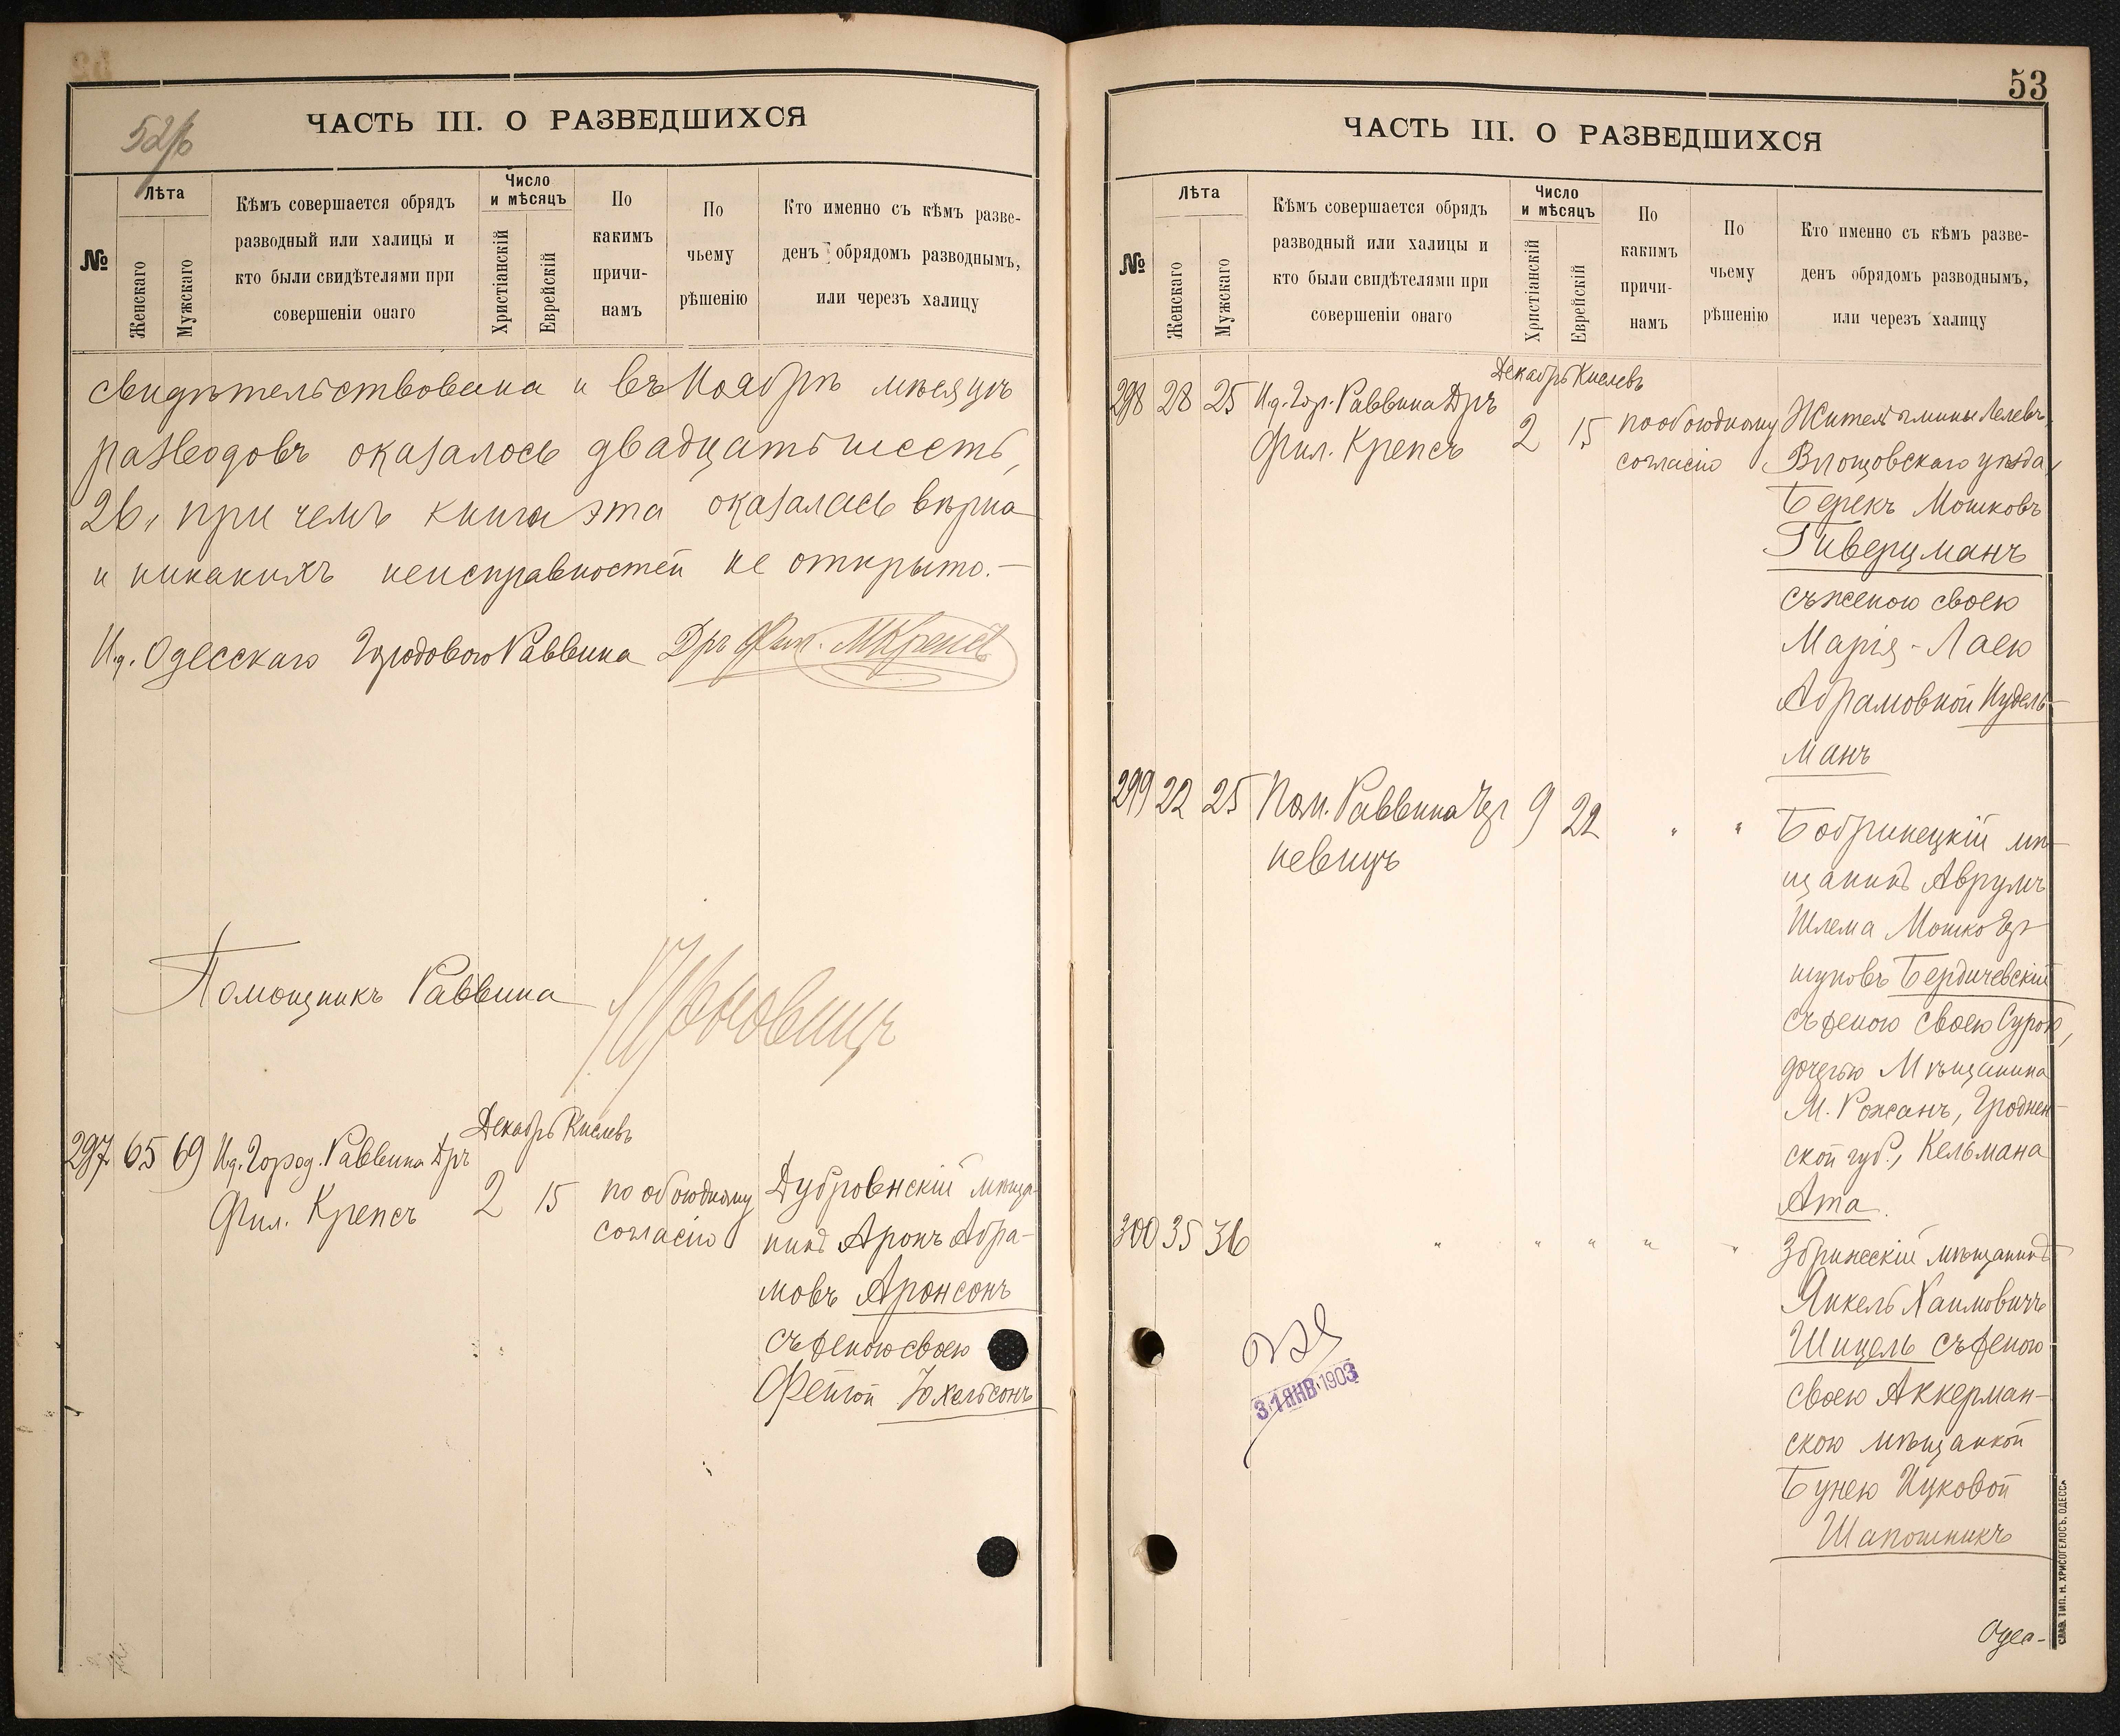 52/б
ЧАСТЬ III. О РАЗВЕДШИХСЯ
№
Лѣта
Женскаго
Мужскаго
Кѣмъ совершается обрядъ
разводный или халицы и
кто были свидѣтелями при
совершеніи онаго
Число
и мѣсяцъ
Христіанскій
Еврейскій
По
какимъ
причи-
намъ
По
чьему
рѣшенію
Кто именно съ кѣмъ разве-
денъ обрядомъ разводнымъ,
или черезъ халицу
свидѣтельствована и въ Ноябрѣ мѣсяцѣ
разводовъ оказалось двадцать шесть,
26, при чемъ книга эта оказалась вѣрна
и никакихъ неисправностей не открыто.—
И.д. Одесскаго Городового Раввина Дръ Фил. МКрепсъ
Помощникъ Раввина
Декабрь Кислевъ
297. 65 69 И.д. Город. Раввина Дръ
Фил. Крепсъ 2 15
по обоюдному
согласію
Дубровенскій мѣща-
нинъ Аронъ Абра-
мовъ Аронсонъ
съ женою своею
Фейгой Юхельсонъ
53
ЧАСТЬ III. О РАЗВЕДШИХСЯ
№
Лѣта
Женскаго
Мужскаго
Кѣмъ совершается обрядъ
разводный или халицы и
кто были свидѣтелями при
совершеніи онаго
Число
и мѣсяцъ
Христіанскій
Еврейскій
По
какимъ
причи-
намъ
По
чьему
рѣшенію
Кто именно съ кѣмъ разве-
денъ обрядомъ разводнымъ,
или черезъ халицу
Декабрь Кислевъ
298 28 25 И.д. Гор. Раввина Дръ
Фил. Крепсъ 2 15
по обоюдному
согласію
Житель гмины Лелевъ,
Влощовскаго уѣзда,
Берекъ Мошковъ
Гиверцманъ
съ женою своею
Марія-Лаею
Абрамовной Нудель-
манъ
299 22 25 Пом. Раввина
невицъ 9 22 " "
Бобринецкій мѣ-
щанинъ Аврумъ
Шлема Мошко
Бердичевскій
съ женою своею Сурою,
дочерью Мѣщанина
М. Рожанъ, Гроднен-
ской губ., Кельмана
Ата.
300 35 36 " " " " "
мѣщанинъ
Янкель Хаимовичъ
Шицель съ женою
своею Аккерман-
скою мѣщанкой
Бунею Ицковой
Шапошникъ
31 ЯНВ. 1903
Одес-
СЛАВ. ТИП. Н. ХРИСОГЕЛОСЪ, ОДЕССА